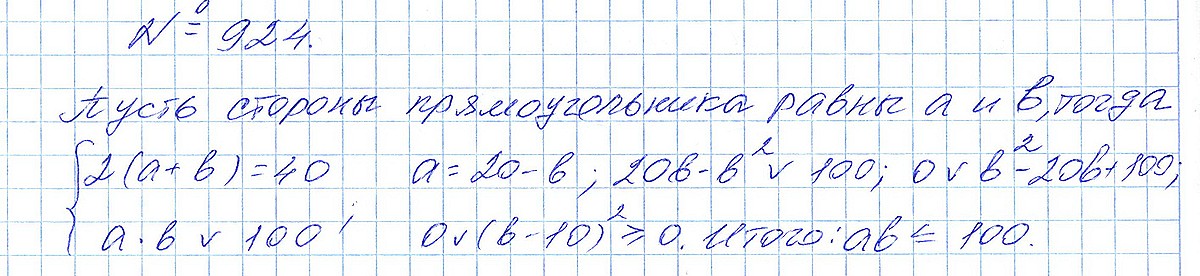 № 924.
Пусть стороны прямоугольника равны a и b, тогда
{2(a+b)=40 a=20-b; 20b-b² ∨ 100; 0 ∨ b²-20b+100;
a·b ∨ 100, 0 ∨ (b-10)² ≥ 0. Итого: ab ≤ 100.